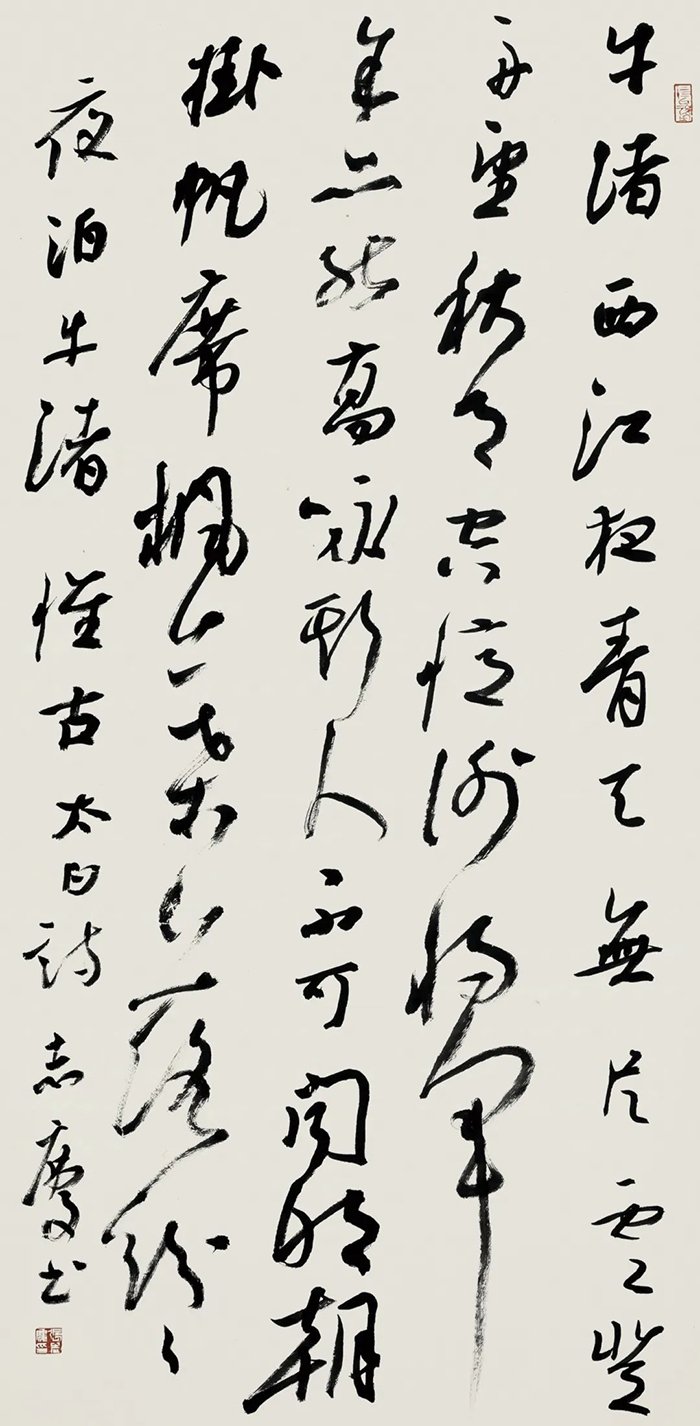 牛渚西江夜青天無片雲登
舟望秋月空憶謝將軍
余亦能高詠斯人不可聞明朝
掛帆席楓葉落紛〻
夜泊牛渚懷古太白詩志慶书